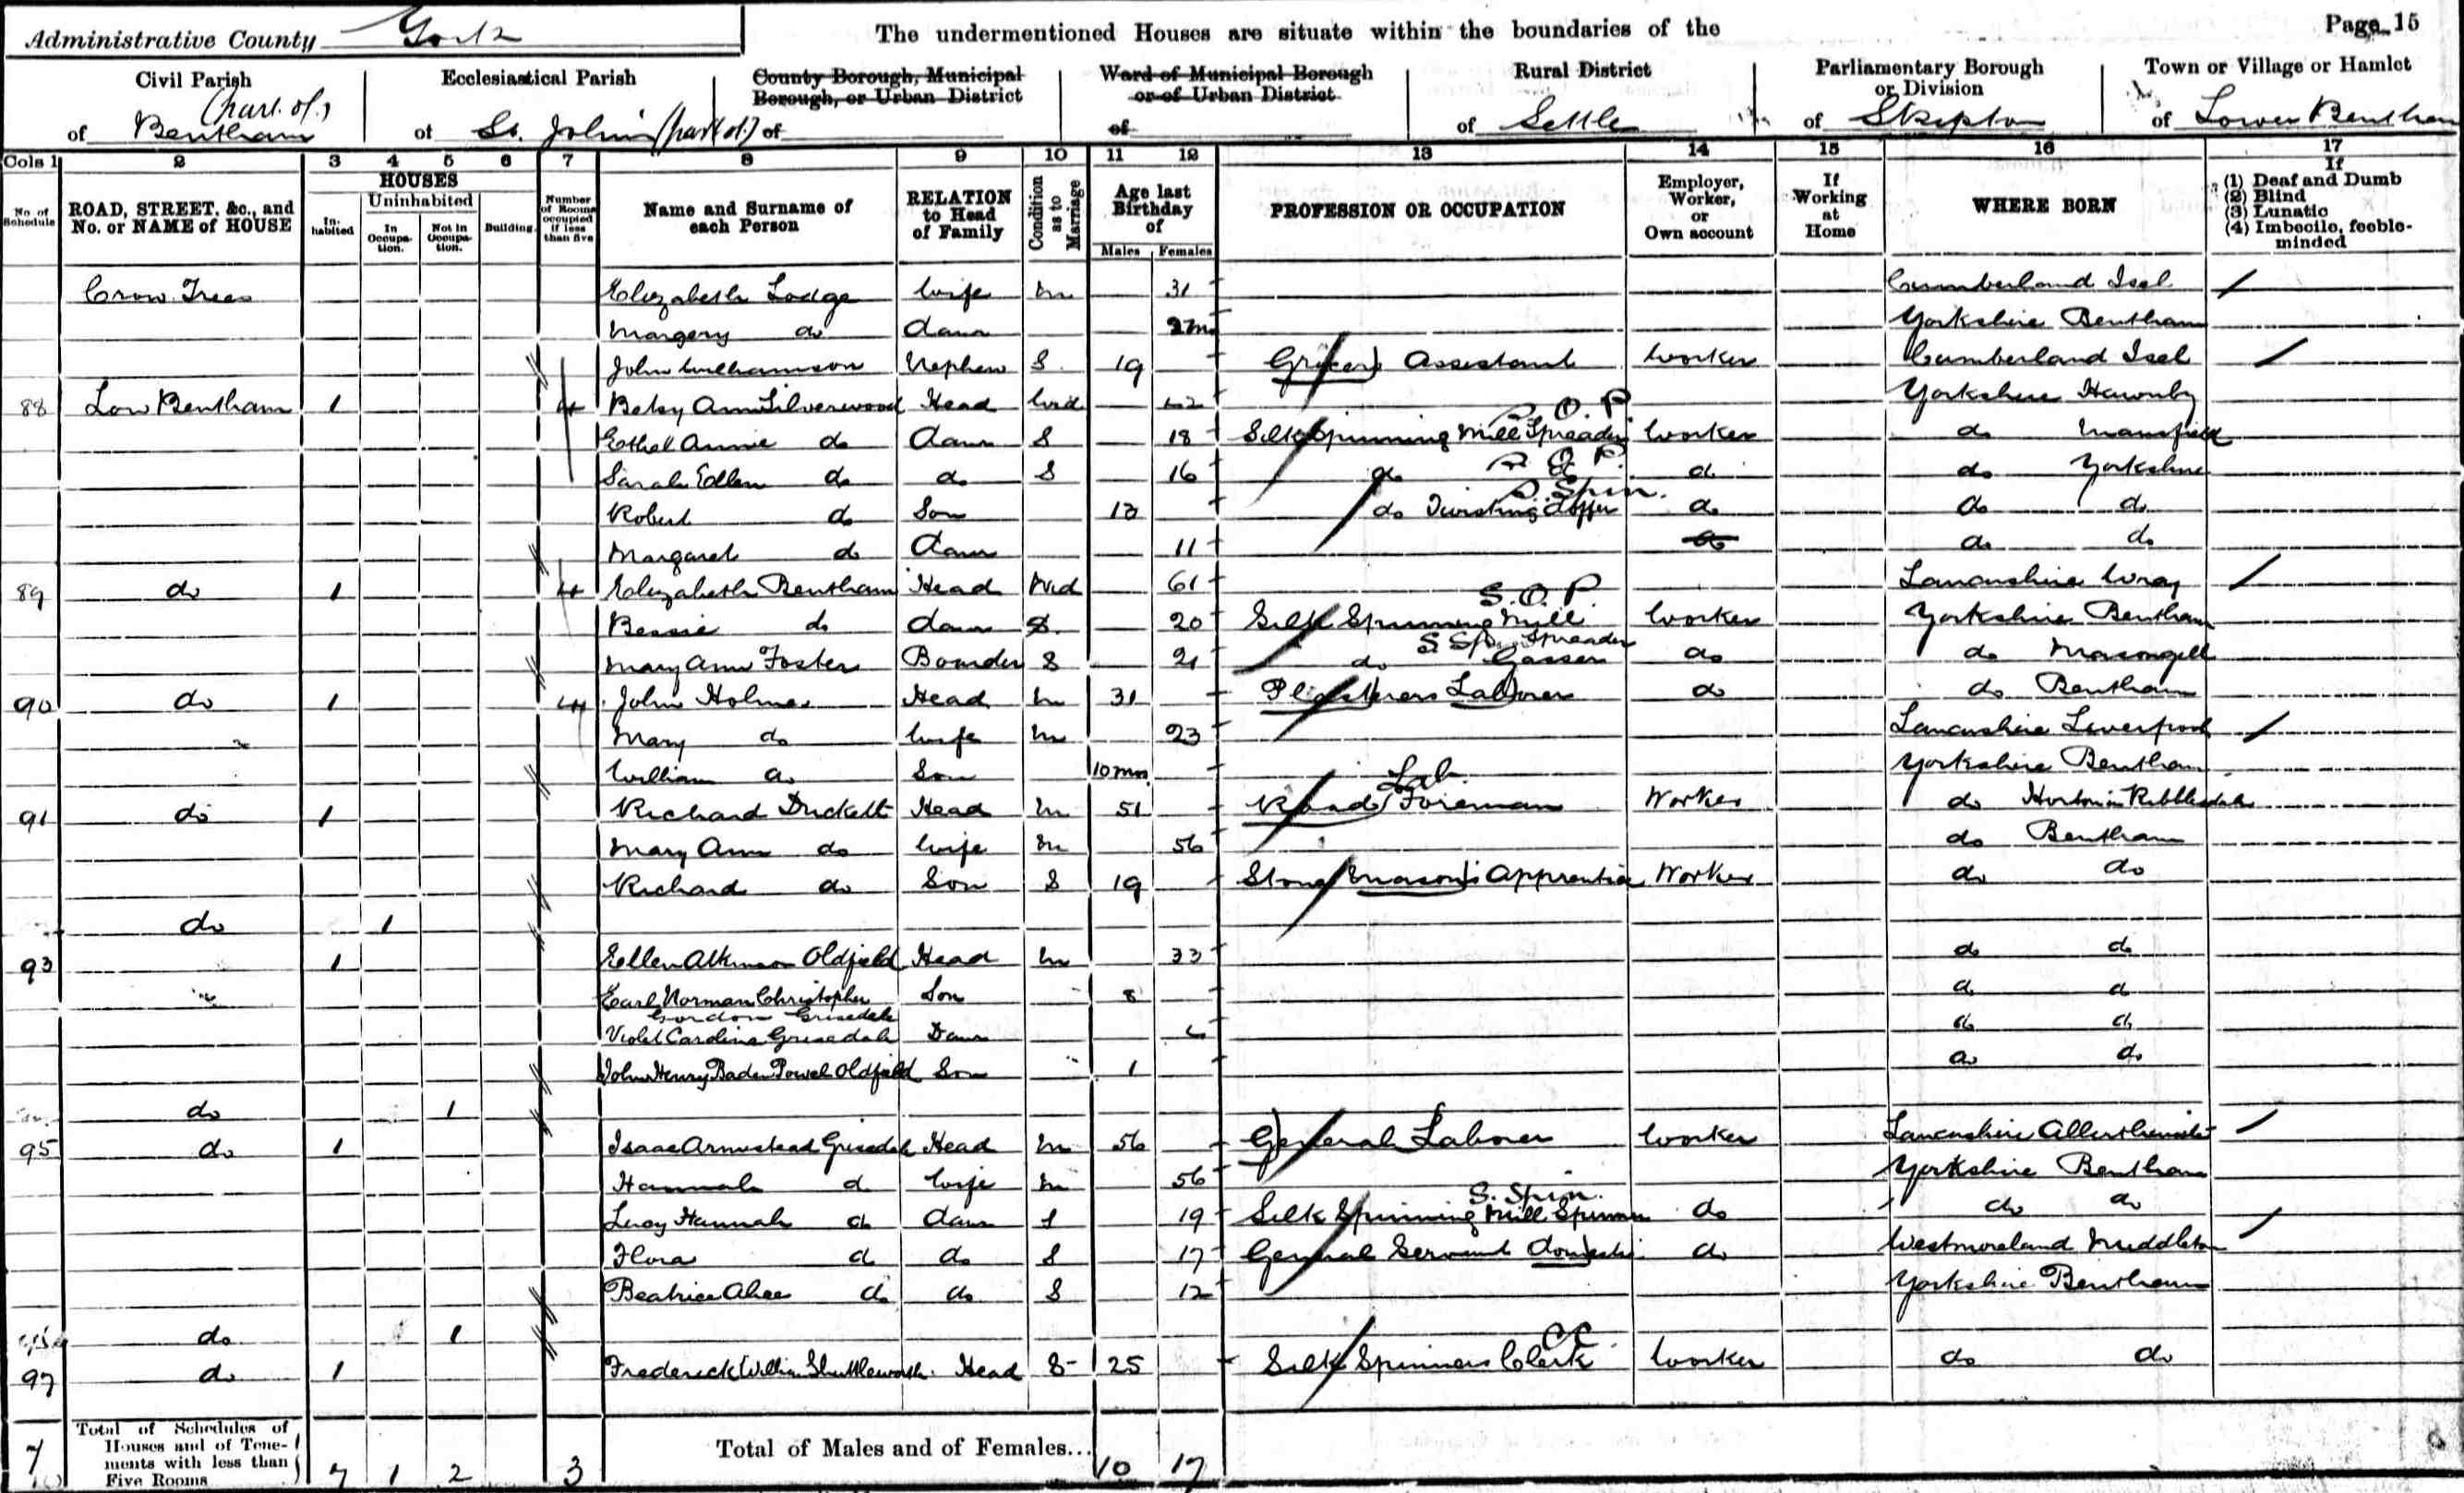 Administrative County York
The undermentioned Houses are situate within the boundaries of the
Page 15
Civil Parish
of Bentham (part of)
Ecclesiastical Parish
of St. John's (part of)
County Borough, Municipal
Borough, or Urban District
of
Ward of Municipal Borough
or of Urban District
of
Rural District
of Settle
Parliamentary Borough
or Division
of Skipton
Town or Village or Hamlet
of Lower Bentham
Cols 1 2 3 4 5 6 7 8 9 10 11 12 13 14 15 16 17
No. of Schedule
ROAD, STREET, &c., and
No. or NAME of HOUSE
HOUSES
In-habited
Uninhabited
In Occupa-tion.
Not in Occupa-tion.
Building
Number of Rooms occupied if less than five
Name and Surname of
each Person
RELATION
to Head
of Family
Condition as to Marriage
Age last
Birthday
of
Males Females
PROFESSION OR OCCUPATION
Employer,
Worker,
or
Own account
If
Working
at
Home
WHERE BORN
If
(1) Deaf and Dumb
(2) Blind
(3) Lunatic
(4) Imbecile, feeble-
minded
Crow Trees Elizabeth Lodge Wife M 31 Cumberland Isel
Margery do Daur 2m Yorkshire Bentham
John Williamson Nephew S 19 Grocer's Assistant Worker Cumberland Isel
88 Low Bentham 1 4 Betsy Ann Silverwood Head Wid 42 Yorkshire
Ethel Annie do Daur S 18 Silk Spinning Mill Spreader Worker do Mansfield
Sarah Ellen do do S 16 do do do Yorkshire
Robert do Son 13 do Twisting Doffer S. Spin. do do do
Margaret do Daur 11 do do do
89 do 1 4 Elizabeth Bentham Head Wid 61 Lancashire Wray
Bessie do daur S 20 Silk Spinning Mill Spreader S.O.P Worker Yorkshire Bentham
Mary Ann Foster Boarder S 21 do Gasser S Spin do do Masongill
90 do 1 4 John Holmes Head M 31 Plasterers Laborer do do Bentham
Mary do Wife M 23 Lancashire Liverpool
William do Son 10 mos Yorkshire Bentham
91 do 1 Richard Duckett Head M 51 Road Foreman Lab. Worker do Horton in Ribblesdale
Mary Ann do Wife M 56 do Bentham
Richard do Son S 19 Stone Mason's Apprentice Worker do do
do 1
93 1 Ellen Atkinson Oldfield Head M 33 do do
Earl Norman Christopher Gordon Grisedale Son 8 do do
Violet Carolina Grisedale Daur 6 do do
John Henry Baden Powel Oldfield Son 1 do do
do 1
95 do 1 Isaac Armistead Grisedale Head M 56 General Laborer Worker Lancashire
Hannah do Wife M 56 Yorkshire Bentham
Lucy Hannah do daur S 19 Silk Spinning Mill Spinner S. Spin. do do do
Flora do do S 17 General Servant domestic do Westmoreland Middleton
Beatrice Alice do do S 12 Yorkshire Bentham
do 1
97 do 1 Frederick William Shuttleworth Head S 25 Silk Spinners Clerk CC Worker do do
7
Total of Schedules of
Houses and of Tene-
ments with less than
Five Rooms
7 1 2 3
Total of Males and of Females... 10 17